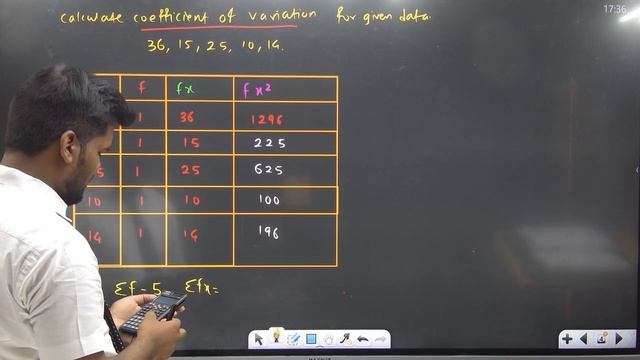 calculate coefficient of variation for given data.
36, 15, 25, 10, 14.
f fx fx²
1 36 1296
1 15 225
5 1 25 625
10 1 10 100
14 1 14 196
Σf = 5 Σfx =
17:36